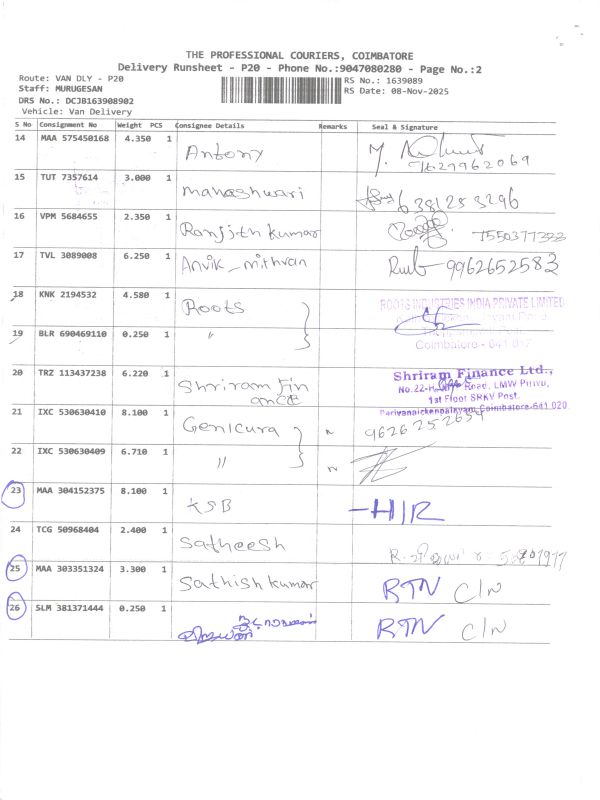 THE PROFESSIONAL COURIERS, COIMBATORE
Delivery Runsheet - P20 - Phone No.:9047080280 - Page No.:2
Route: VAN DLY - P20 RS No.: 1639089
Staff: MURUGESAN RS Date: 08-Nov-2025
DRS No.: DCJB163908902
Vehicle: Van Delivery
S No Consignment No Weight PCS Consignee Details Remarks Seal & Signature
14 MAA 575450168 4.350 1 Antony
15 TUT 7357614 3.000 1 mahashwari 6381253296
16 VPM 5684655 2.350 1 Ranjith kumar
17 TVL 3089008 6.250 1 Anvik-mithran 9962652583
18 KNK 2194532 4.580 1 Roots ROOTS INDUSTRIES INDIA PRIVATE LIMITED
19 BLR 690469110 0.250 1 " Coimbatore - 641 017
20 TRZ 113437238 6.220 1 Shriram Fin ance Shriram Finance Ltd.,
Road, LMW Pirivu,
1st Floor SRKV Post.
Perivanaickenpalayam Coimbatore-641 020
21 IXC 530630410 8.100 1 Genicura 9626252634
22 IXC 530630409 6.710 1 "
23 MAA 304152375 8.100 1 KSB -H/R
24 TCG 50968404 2.400 1 Satheesh
25 MAA 303351324 3.300 1 Sathish kumar RTN C/N
26 SLM 381371444 0.250 1 RTN C/N